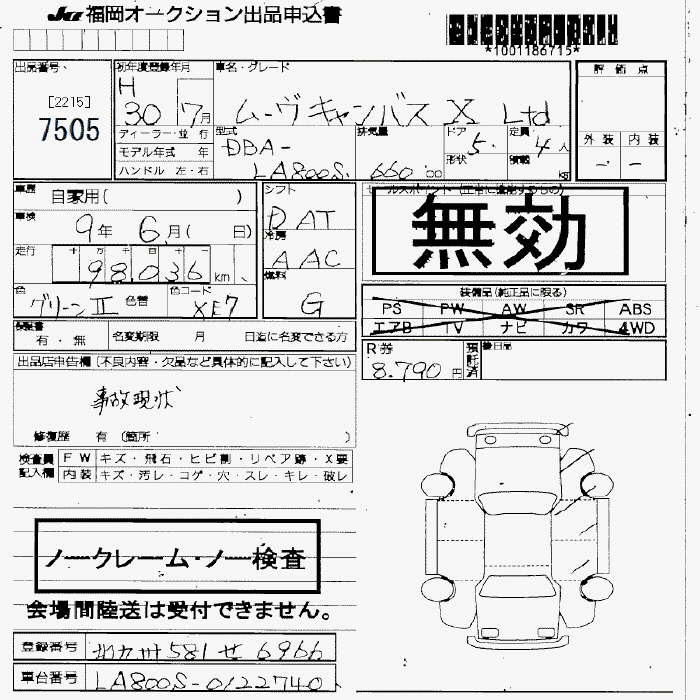 JU 福岡オークション出品申込書
*1001186715*
出品番号
[2215]
7505
初年度登録年月
H 30 7月
車名・グレード
ムーヴキャンバス X Ltd
ディーラー・並 行
モデル年式 年
ハンドル 左・右
型式
DBA-
LA800S
排気量
660 cc
ドア 5
形状
定員 4人
積載 kg
評価点
外装 内装
- -
車歴 自家用( )
車検 9年 6月( 日)
走行 十 万 千 百 十
98,036 km
色 グリーンⅡ 色替 色コード XE7
シフト D AT
冷房 A AC
燃料 G
セールスポイント(正常に機能するもの)
無効
装備品(純正品に限る)
PS PW AW SR ABS
エアB TV ナビ カワ 4WD
保証書 有・無 名変期限 月 日迄に名変できる方
R券 8,790円 預託済
後日品
出品店申告欄(不良内容・欠品など具体的に記入して下さい)
事故現状
修復歴 有(箇所 )
検査員記入欄
FW キズ・飛石・ヒビ割・リペア跡・X要
内装 キズ・汚レ・コゲ・穴・スレ・キレ・破レ
ノークレーム・ノー検査
会場間陸送は受付できません。
登録番号 北九州581せ6966
車台番号 LA800S-0122740